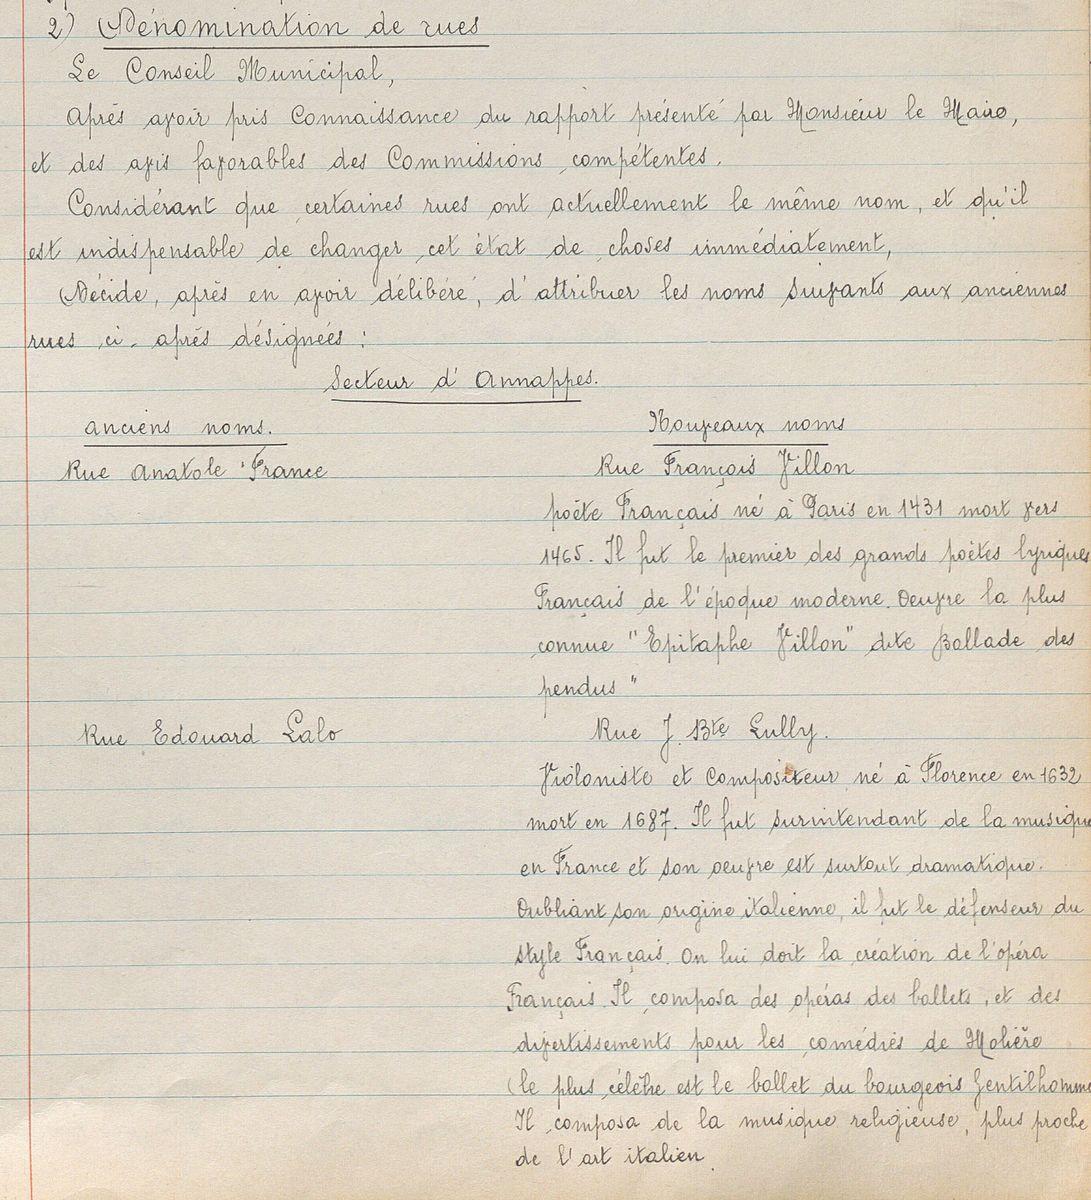 2) Dénomination de rues
Le Conseil Municipal,
Après avoir pris connaissance du rapport présenté par Monsieur le Maire,
et des avis favorables des Commissions compétentes.
Considérant que certaines rues ont actuellement le même nom, et qu'il
est indispensable de changer cet état de choses immédiatement,
Décide, après en avoir délibéré, d'attribuer les noms suivants aux anciennes
rues ci-après désignées :
Secteur d'Annappes.
anciens noms. Nouveaux noms
Rue Anatole France Rue François Villon
poète Français né à Paris en 1431 mort vers
1465. Il fut le premier des grands poètes lyriques
Français de l'époque moderne. Oeuvre la plus
connue "Epitaphe Villon" dite Ballade des
pendus"
Rue Edouard Lalo Rue J. Bte Lully.
Violoniste et compositeur né à Florence en 1632
mort en 1687. Il fut surintendant de la musique
en France et son oeuvre est surtout dramatique.
Oubliant son origine italienne, il fut le défenseur du
style Français. On lui doit la création de l'opéra
Français. Il composa des opéras des ballets, et des
divertissements pour les comédies de Molière
(le plus célèbre est le ballet du bourgeois Gentilhomme
Il composa de la musique religieuse, plus proche
de l'art italien.